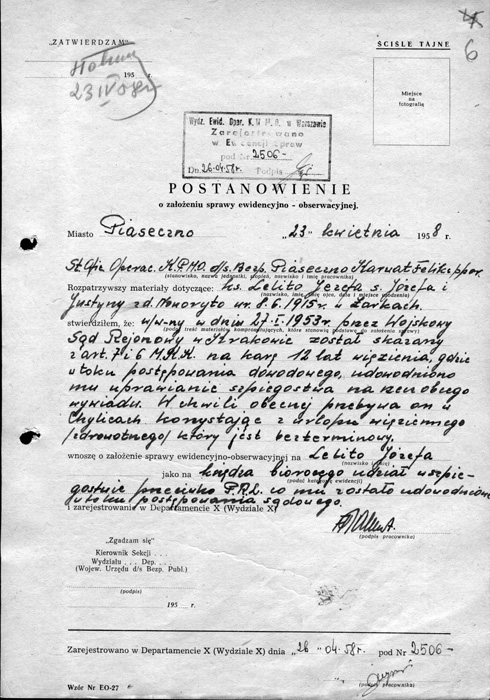 6
„ZATWIERDZAM"
ŚCIŚLE TAJNE
195 r.
23 IV 58r
Miejsce
na
fotografię
Wydz. Ewid. Opor. K.W M.O. w Warszawie
Zarejestrowano
w Ewidencji Spraw
pod Nr 2506-
Dn. 26-04-58r. Podpis
POSTANOWIENIE
o założeniu sprawy ewidencyjno - obserwacyjnej.
Miasto Piaseczno „23" kwietnia 1958 r.
St. Ofic Operac. K.P.M.O. d/s. Bezp. Piaseczno Karwat Feliks ppor.
(stanowisko, nazwa jednostki, stopień, nazwisko i imię pracownika)
Rozpatrzywszy materiały dotyczące: ks. Lelito Józefa s. Józefa i
(nazwisko, imię, imię ojca, data i miejsce urodzenia)
Justyny z d. Noworyto ur. 8.6.1915r. w Żarkach.
stwierdziłem, że: w/w-ny w dniu 27-I-1953r. przez Wojskowy
(podać treść materiałów kompromitujących, które stanowią podstawę do założenia sprawy)
Sąd Rejonowy w Krakowie został skazany
z art. 7 i 6 M.K.K. na karę 12 lat więzienia, gdzie
w toku postępowania dowodowego, udowodniono
mu uprawianie szpiegostwa na rzecz obcego
wywiadu. W chwili obecnej przebywa on w
Chylicach korzystając z urlopu więziennego
/zdrowotnego/ który jest bezterminowy.
wnoszę o założenie sprawy ewidencyjno-obserwacyjnej na Lelito Józefa
(nazwisko i imię)
jako na księdza biorącego udział w szpie-
(podać kategorię ewidencji)
gostwie przeciwko P.R.L. co mu zostało udowodnione
w toku postępowania sądowego.
i zarejestrowanie w Departamencie X (Wydziale X)
(podpis pracownika)
„Zgadzam się"
Kierownik Sekcji . . .
Wydziału . . . Dep. . . .
(Wojew. Urzędu d/s Bezp. Publ.)
(podpis)
195 r.
Zarejestrowano w Departamencie X (Wydziale X) dnia „26" -04-58r. pod Nr 2506-
(podpis pracownika)
Wzór Nr EO-27